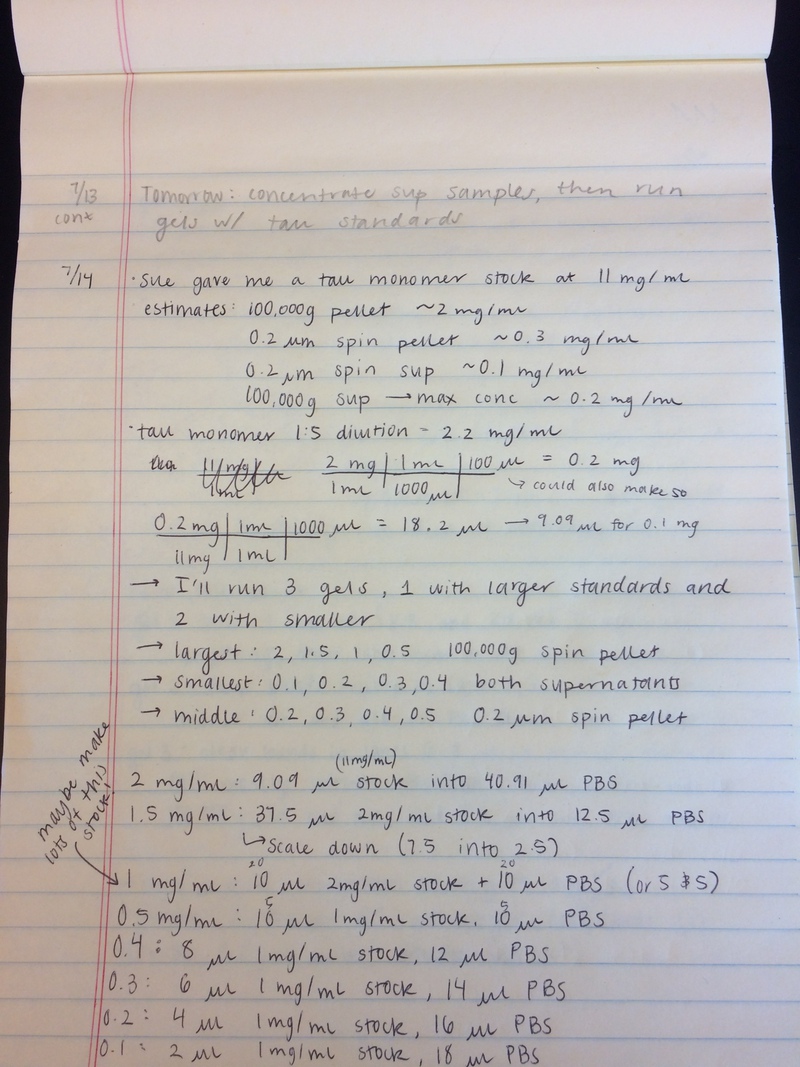 7/13 Tomorrow: concentrate sup samples, then run
cont gels w/ tau standards
7/14 · Sue gave me a tau monomer stock at 11 mg/mL
estimates: 100,000g pellet ~2 mg/mL
0.2 µm spin pellet ~0.3 mg/mL
0.2 µm spin sup ~0.1 mg/mL
100,000g sup → max conc ~ 0.2 mg/mL
· tau monomer 1:5 dilution = 2.2 mg/mL
2 mg | 1 mL | 100 µL = 0.2 mg
1 mL | 1000 µL ↳ could also make 50
0.2 mg | 1 mL | 1000 µL = 18.2 µL → 9.09 µL for 0.1 mg
11 mg | 1 mL
→ I'll run 3 gels, 1 with larger standards and
2 with smaller
→ largest: 2, 1.5, 1, 0.5 100,000g spin pellet
→ smallest: 0.1, 0.2, 0.3, 0.4 both supernatants
→ middle: 0.2, 0.3, 0.4, 0.5 0.2 µm spin pellet
(11mg/mL)
2 mg/mL: 9.09 µL stock into 40.91 µL PBS
1.5 mg/mL: 37.5 µL 2mg/mL stock into 12.5 µL PBS
↳ Scale down (7.5 into 2.5)
maybe make
lots of this
stock!
20 20
1 mg/mL: 10 µL 2mg/mL stock + 10 µL PBS (or 5 & 5)
5 5
0.5 mg/mL: 10 µL 1mg/mL stock, 10 µL PBS
0.4: 8 µL 1mg/mL stock, 12 µL PBS
0.3: 6 µL 1 mg/mL stock, 14 µL PBS
0.2: 4 µL 1mg/mL stock, 16 µL PBS
0.1: 2 µL 1mg/mL stock, 18 µL PBS